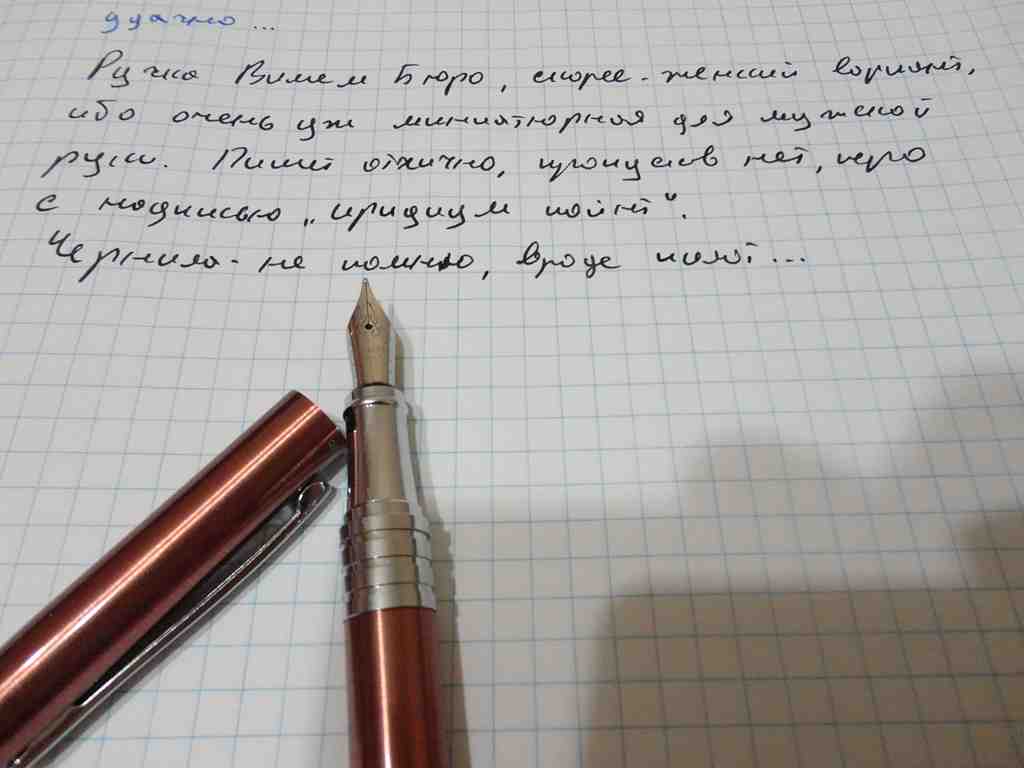 удачно...
Ручка Вилем Бюро, скорее - женский вариант,
ибо очень уж миниатюрная для мужской
руки. Пишет отлично, пропусков нет, перо
с надписью „иридиум пойнт“.
Чернила - не помню, вроде пилот...